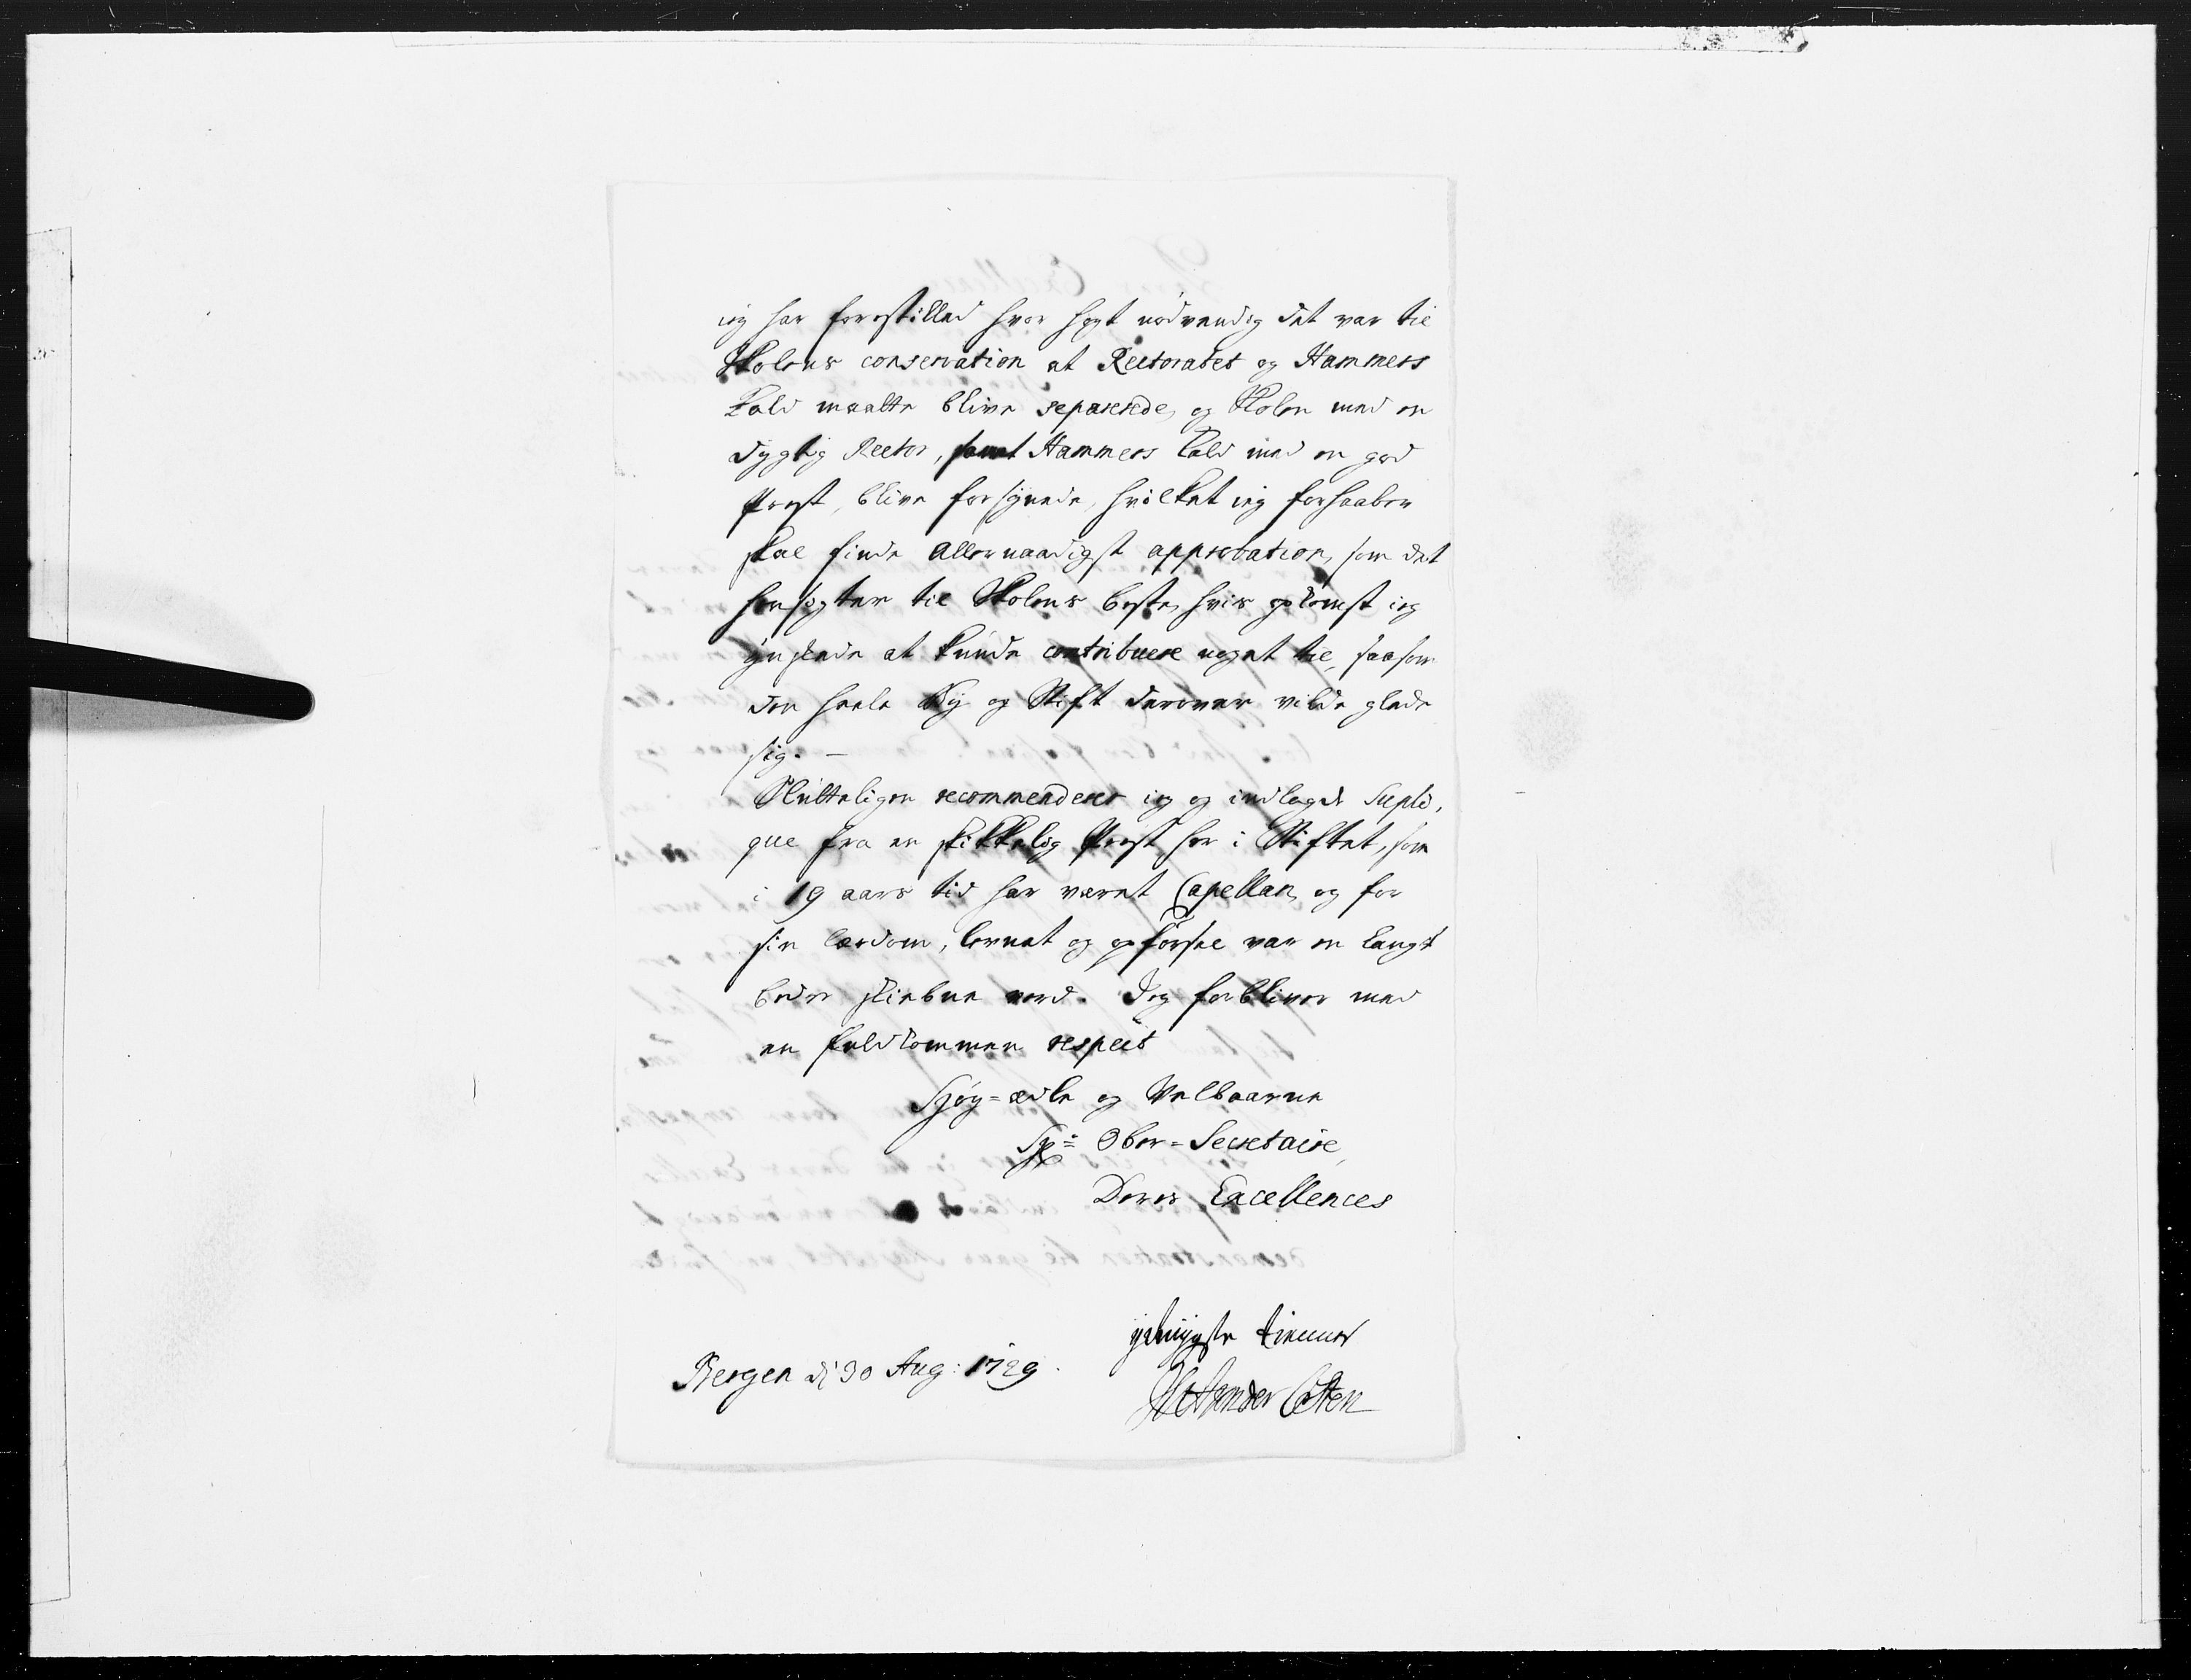 ieg har forestilled hvor høyt nødvendig det var til
Skolens conservation at Rectoratet og Hammers
Kald maatte blive separerede, og Skolen med en
dygtig Rector, samt Hammers Kald med en god
Præst, blive forsynede, hvilket ieg forhaaber
skal finde allernaadigst approbation, som det
hensigter til Skolens beste, hvis opkomst ieg
ynskede at kunde contribuere noget til, saasom
den heele By og Stift derover vilde glæde
sig. —
Slutteligen recommenderer ieg og indlagde Supli-
que fra en skikkelig Præst her i Stiftet, som
i 19 aars tid har været Capellan, og for
sin lærdom, levnet og opførsel var en langt
bedre skiebne værd. Jeg forbliver med
en fuldkommen respect
Høy=ædle og Velbaarne
Hr: Ober=Secretaire,
Deres Excellences
ydmygste tienner
Bergen d: 30 Aug: 1729.